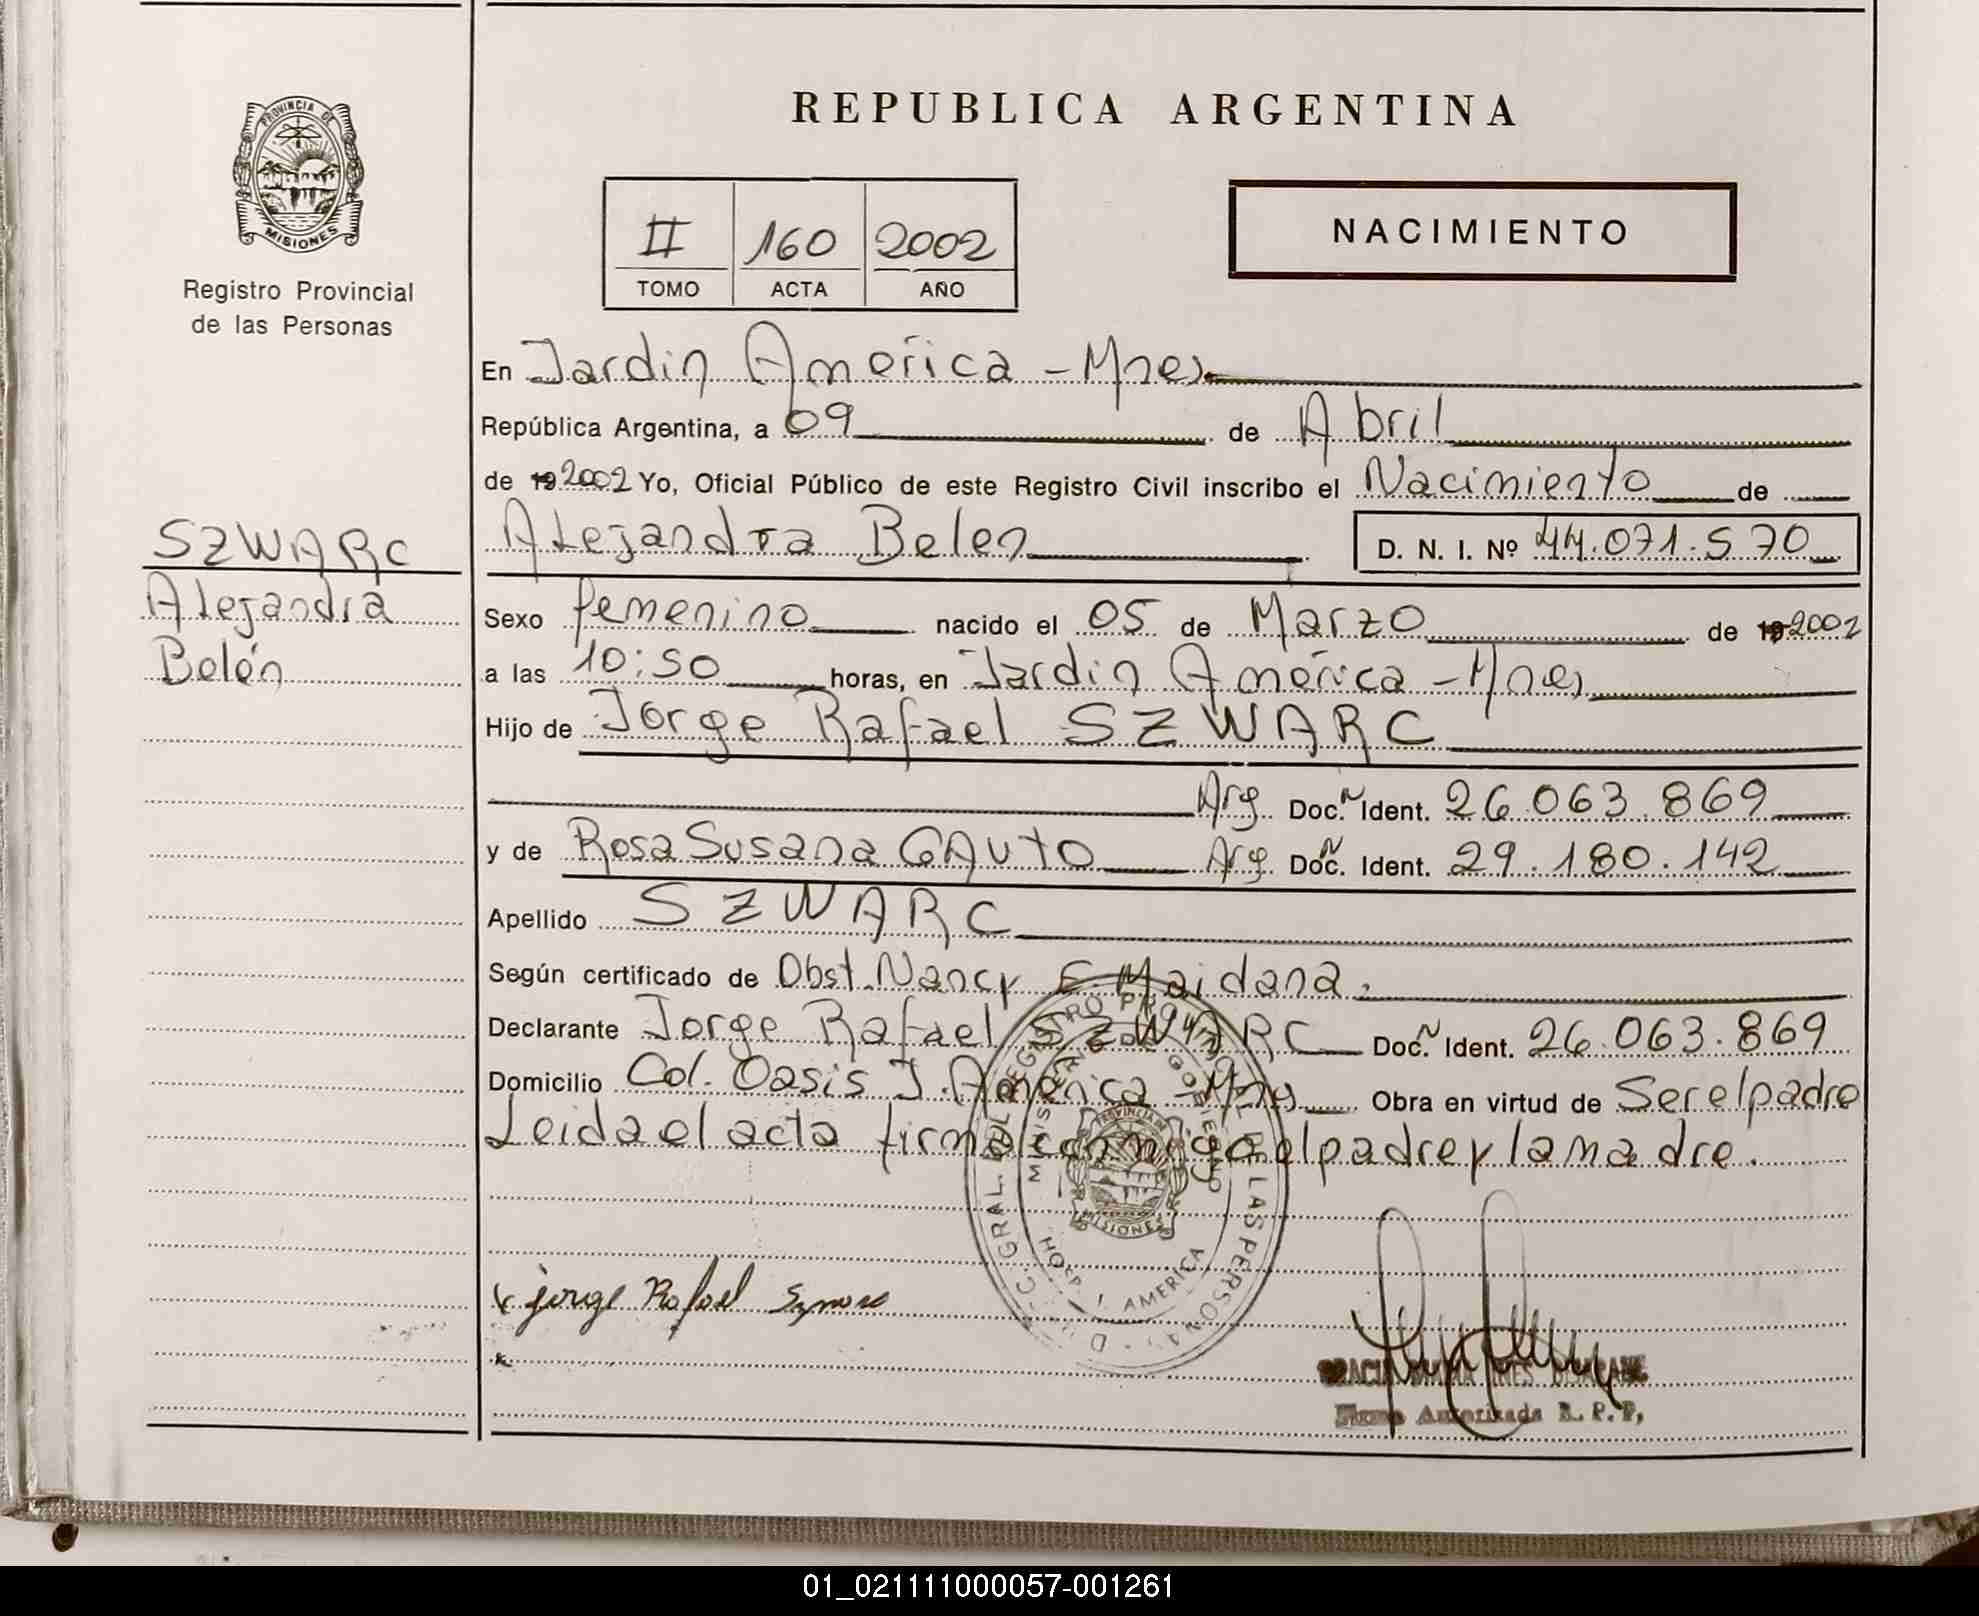 PROVINCIA DE
MISIONES
Registro Provincial
de las Personas
SZWARC
Alejandra
Belén
REPUBLICA ARGENTINA
II 160 2002
TOMO ACTA AÑO
NACIMIENTO
En Jardin América - Mnes.
República Argentina, a 09 de Abril
de 19 2002 Yo, Oficial Público de este Registro Civil inscribo el Nacimiento de
Alejandra Belen D. N. I. Nº 44.071.570
Sexo femenino nacido el 05 de Marzo de 19 2002
a las 10:50 horas, en Jardin América - Mnes
Hijo de Jorge Rafael SZWARC
Arg. Doc. N Ident. 26.063.869
y de Rosa Susana GAUTO Arg. Doc. N Ident. 29.180.142
Apellido SZWARC
Según certificado de Obst. Nancy E. Maidana.
Declarante Jorge Rafael SZWARC Doc. N Ident. 26.063.869
Domicilio Col. Oasis J. América - Mnes Obra en virtud de Ser el padre
Leida el acta firma conmigo el padre y la madre.
REGISTRO PROVINCIAL DE LAS PERSONAS
MINISTERIO DE GOBIERNO
PROVINCIA DE
MISIONES
HOSP. J. AMERICA
x jorge Rafael Szwarc
x
Firma Autorizada R. P. P.
01_021111000057-001261